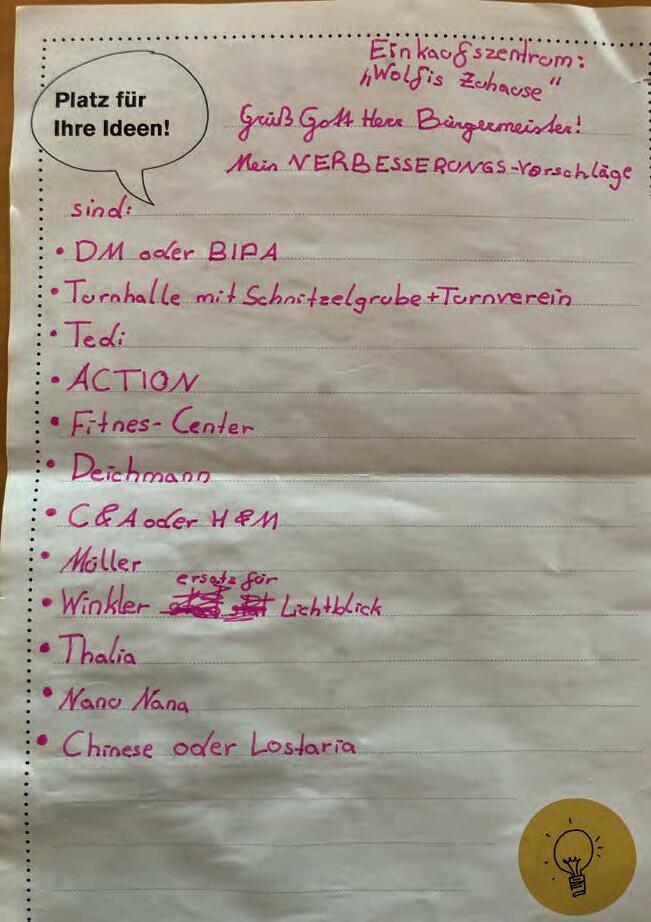 Einkaufszentrum:
„Wolfis Zuhause“
Platz für
Ihre Ideen!
Grüß Gott Herr Bürgermeister!
Mein VERBESSERUNGS-Vorschläge
sind:
• DM oder BIPA
• Turnhalle mit Schnitzelgrube + Turnverein
• Tedi
• ACTION
• Fitnes-Center
• Deichmann
• C&A oder H&M
• Müller
ersatz für
• Winkler Lichtblick
• Thalia
• Nanu Nana
• Chinese oder Lostaria